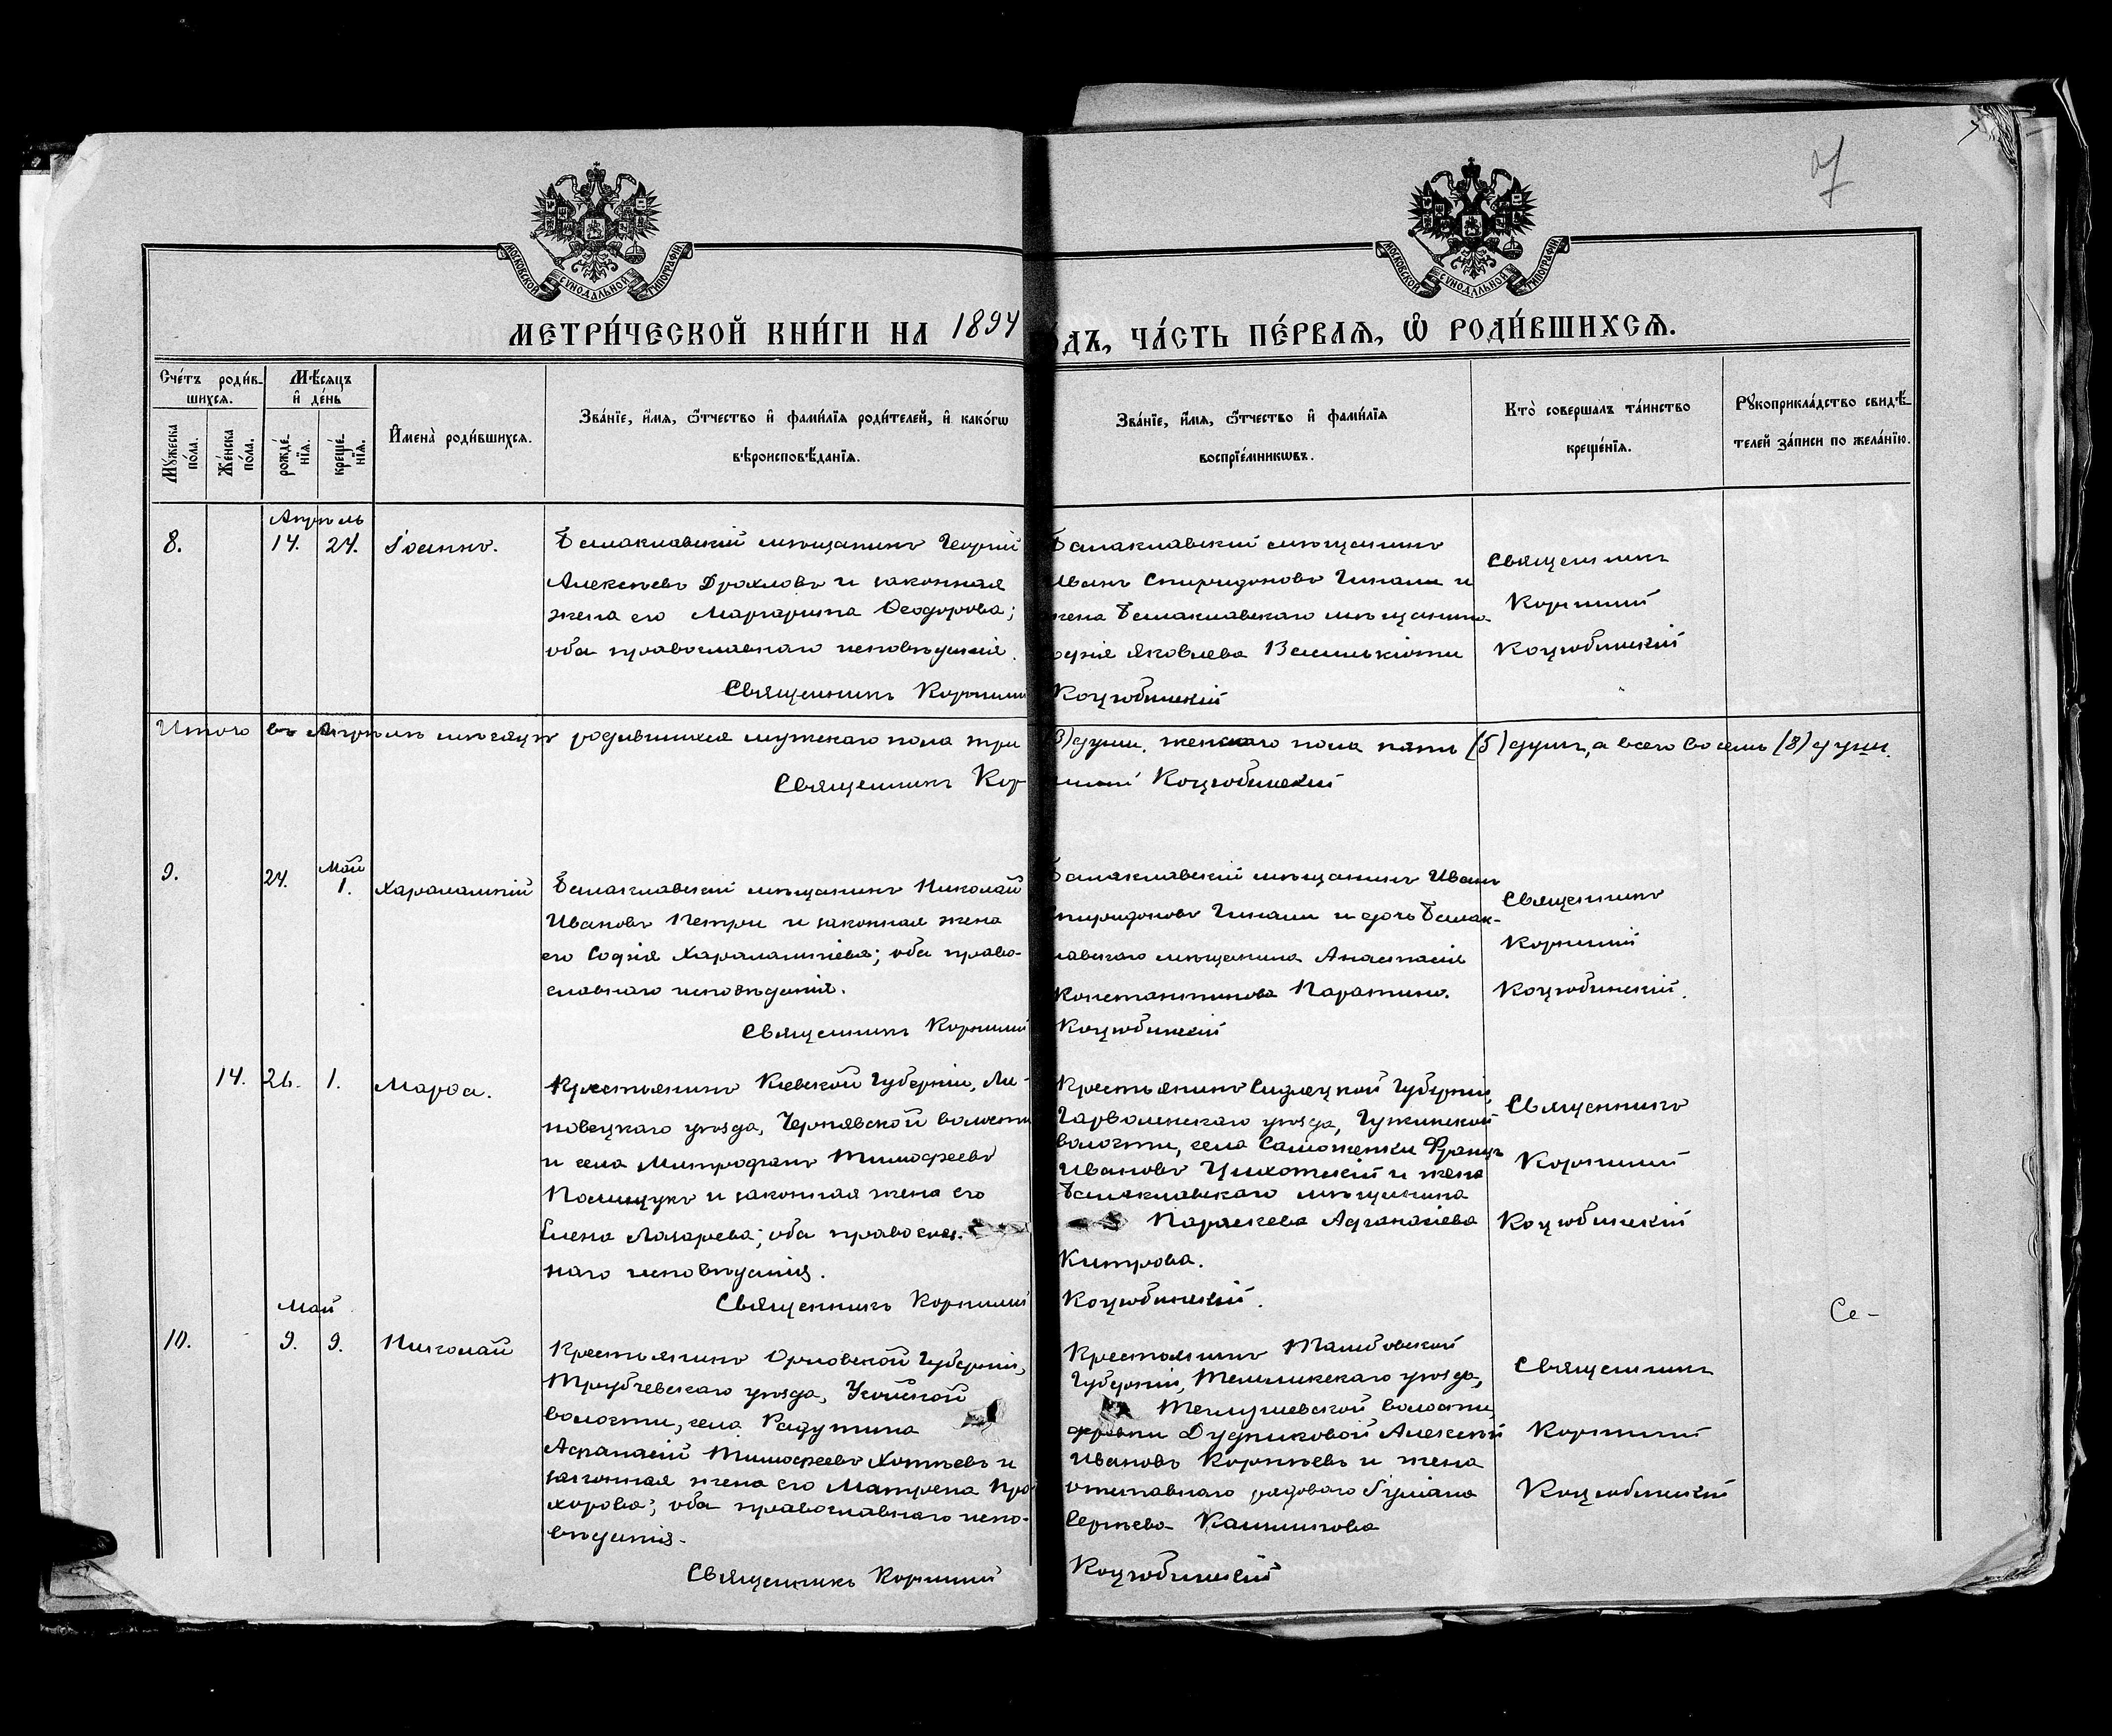 7
МОСКОВСКОЙ СѴНОДАЛЬНОЙ ТИПОГРАФІИ
МОСКОВСКОЙ СѴНОДАЛЬНОЙ ТИПОГРАФІИ
МЕТРИ́ЧЕСКОЙ КНИ́ГИ НА 1894
ОДЪ, ЧА́СТЬ ПЕ́РВАѦ, Ѽ РОДИ́ВШИХСѦ.
Сче́тъ роди́в-
шихсѧ.
Мѣ́сяцъ
и҆ де́нь
Мꙋ́жеска
по́ла.
Же́нска
по́ла.
рожде́-
нїѧ.
креще́-
нїѧ.
И҆мена̀ роди́вшихсѧ.
Зва́нїе, и҆́мѧ, ѻ҆́тчество и҆ фами́лїѧ роди́телей, и҆ како́гѡ
вѣроисповѣ́данїѧ.
Зва́нїе, и҆́мѧ, ѻ҆́тчество и҆ фами́лїѧ
воспрїе́мникѡвъ.
Кто̀ соверша́лъ та́инство
креще́нїѧ.
Рꙋкоприкла́дство свидѣ́-
телей за́писи по жела́нїю.
Апрѣль
8.
14.
24.
Іоаннъ.
Балаклавскій мѣщанинъ Георгій
Алексѣевъ Драхловъ и законная
жена его Маргарита Ѳеодорова;
оба православнаго исповѣданія.
Балаклавскій мѣщанинъ
Иванъ Спиридоновъ Гинали и
жена Балаклавскаго мѣщанина
Софія Яковлева Василькіоти
Священникъ
Корнилій
Коцюбинскій
Священникъ Корнилій Коцюбинскій
Итого въ Апрѣлѣ мѣсяцѣ родившихся мужескаго пола три (3) души, женскаго пола пять (5) душъ, а всего восемь (8) душъ.
Священникъ Корнилій Коцюбинскій
9.
24.
Май
1.
Харалампій
Балаклавскій мѣщанинъ Николай
Ивановъ Петри и законная жена
его Софія Харалампіева; оба право-
славнаго исповѣданія.
Балаклавскій мѣщанинъ Иванъ
Спиридоновъ Гинали и дочь Балак-
лавскаго мѣщанина Анастасія
Константинова Паратино.
Священникъ
Корнилій
Коцюбинскій.
Священникъ Корнилій Коцюбинскій
14.
26.
1.
Марѳа.
Крестьянинъ Кіевской Губерніи, Ли-
повецкаго уѣзда, Чернявской волости
и села Митрофанъ Тимофеевъ
Полищукъ и законная жена его
Елена Лазарева; оба православ-
наго исповѣданія.
Крестьянинъ Сѣдлецкой Губерніи,
Гарволинскаго уѣзда,
волости, села Францъ
Ивановъ и жена
Балаклавскаго мѣщанина
Параскева Афанасіева
Китрова.
Священникъ
Корнилій
Коцюбинскій
Священникъ Корнилій Коцюбинскій.
Май
10.
9.
9.
Николай
Крестьянинъ Орловской Губерніи,
Трубчевскаго уѣзда, Усойской
волости, села Радутина
Афанасій Тимофеевъ Хотѣевъ и
законная жена его Матрена Про-
хорова; оба православнаго испо-
вѣданія.
Крестьянинъ Тамбовской
Губерніи, Темниковскаго уѣзда,
волости,
Дудниковой Алексѣй
Ивановъ Корнѣевъ и жена
отставнаго рядового Іуліана
Сергѣева Калмыкова
Священникъ
Корнилій
Коцюбинскій
Се-
Священникъ Корнилій Коцюбинскій